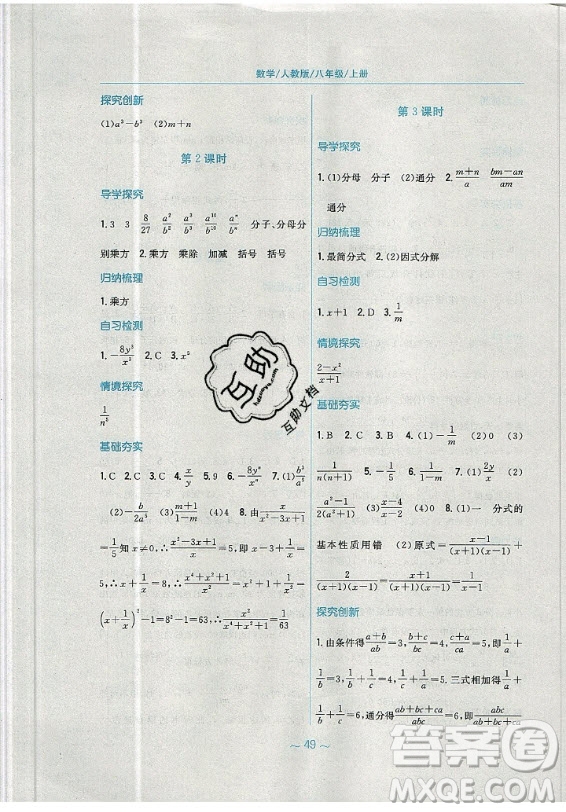 数学/人教版/八年级/上册
探究创新
(1)a²-b² (2)m+n
第2课时
导学探究
1. 3 3 8/27 a²/b² a³/b³ a¹⁰/b¹⁰ aⁿ/bⁿ 分子、分母分
别乘方 2. 乘方 乘除 加减 括号 括号
归纳梳理
1. 乘方
自习检测
1. -8y³/x³ 2. C 3. x⁵
情境探究
基础夯实
1. C 2. C 3. C 4. x/y 5. 9 6. -8y⁹/xⁿ 7. (1)b²/a²
(2)-b/2a⁵ (3)(m+1)/(1-m) (4)4 8. 由x/(x²-3x+1)
=1/5知x≠0,∴(x²-3x+1)/x=5,即x-3+1/x=
5,∴x+1/x=8,∴(x⁴+x²+1)/x²=x²+1+1/x²=
(x+1/x)²-1=8²-1=63,∴x²/(x⁴+x²+1)=1/63.
第3课时
导学探究
1. (1)分母 分子 (2)通分 2. (m+n)/a (bm-an)/am
通分
归纳梳理
1. 最简分式 2. (2)因式分解
自习检测
1. x+1 2. D 3. 1/m
情境探究
(2-x²)/(x+1)
基础夯实
1. B 2. B 3. C 4. (1)-1/5 (2)0 (3)
1/n(n+1) 5. -1/5 6. 1 7. (1)2y/x (2)
(a²-1)/2(a²+1) (3)(x-4)/(x-2) (4)0 8. (1)一 分式的
基本性质用错 (2)原式=(x-1)/(x+1)(x-1)+
2/(x+1)(x-1)=(x+1)/(x+1)(x-1)=1/(x-1)
探究创新
1. 由条件得(a+b)/ab=3,(b+c)/bc=4,(c+a)/ca=5,即1/a+
1/b=3,1/b+1/c=4,1/c+1/a=5. 三式相加得1/a+
1/b+1/c=6,通分得(ab+bc+ca)/abc=6,即abc/(ab+bc+ca)=1/6
~ 49 ~
互助
互助文档
答案圈
MXQE.COM